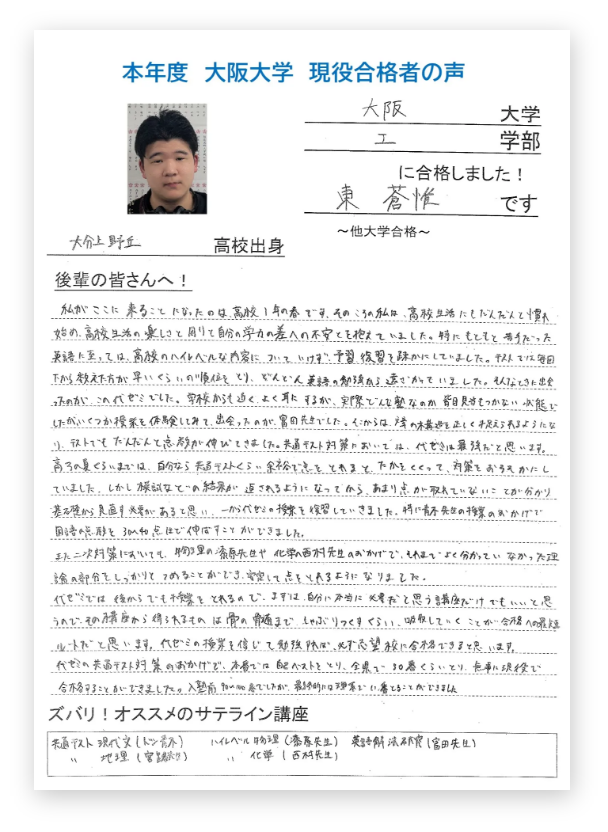 本年度 大阪大学 現役合格者の声
大阪 大学
工 学部
に合格しました！
東 蒼惟 です
大分上野丘 高校出身
～他大学合格～
後輩の皆さんへ！
私がここに来ることになったのは、高校1年の春です。そのころの私は、高校生活にもだんだんと慣れ
始め、高校生活の楽しさと周りと自分の学力の差への不安とを抱えていました。特にもともと苦手だった
英語に至っては、高校のハイレベルな内容についていけず、予習復習を疎かにしていました。テストでは毎回
下から数えた方が早いくらいの順位をとり、どんどん英語の勉強から遠ざかっていました。そんなときに出会
ったのが、この代ゼミでした。学校からも近く、よく耳にするが、実際どんな塾なのか皆目見当もつかない状態で
したがいくつか授業を体験してみて、出会ったのが、富田先生でした。そこからは、文の構造を正しく捉えられるようにな
り、テストでもだんだんと点数が伸びてきました。共通テスト対策においては、代ゼミは最強だと思います。
高3の夏くらいまでは、自分なら共通テストくらい余裕で点をとれると、たかをくくって、対策をおろそかにし
ていました。しかし模試などの結果が返されるようになってから、あまり点が取れていないことが分かり
基礎から見直す必要があると思い、一から代ゼミの授業を復習していきました。特に青木先生の授業のおかげで
国語の点数を30～40点ほど伸ばすことができました。
また二次対策においても、物理の漆原先生や化学の西村先生のおかげで、それまでよく分かっていなかった理
論の部分をしっかりとつめることができ、安定して点をとれるようになりました。
代ゼミでは後からでも授業をとれるので、まずは、自分に本当に必要だと思う講座だけでもいいと思
うので、その講座から得られるものは骨の髄まで、しゃぶりつくすくらい、吸収していくことが合格への最短
ルートだと思います。代ゼミの授業を信じて勉強すれば、必ず志望校に合格できると思います。
代ゼミの共通テスト対策のおかげで、本番では自己ベストをとり、全県で30番くらいとり、無事に現役で
合格することができました。入塾前
ズバリ！オススメのサテライン講座
共通テスト現代文(ドン青木) ハイレベル物理(漆原先生) 英語解法研究(富田先生)
〃 地理(宮路先生) 〃 化学(西村先生)